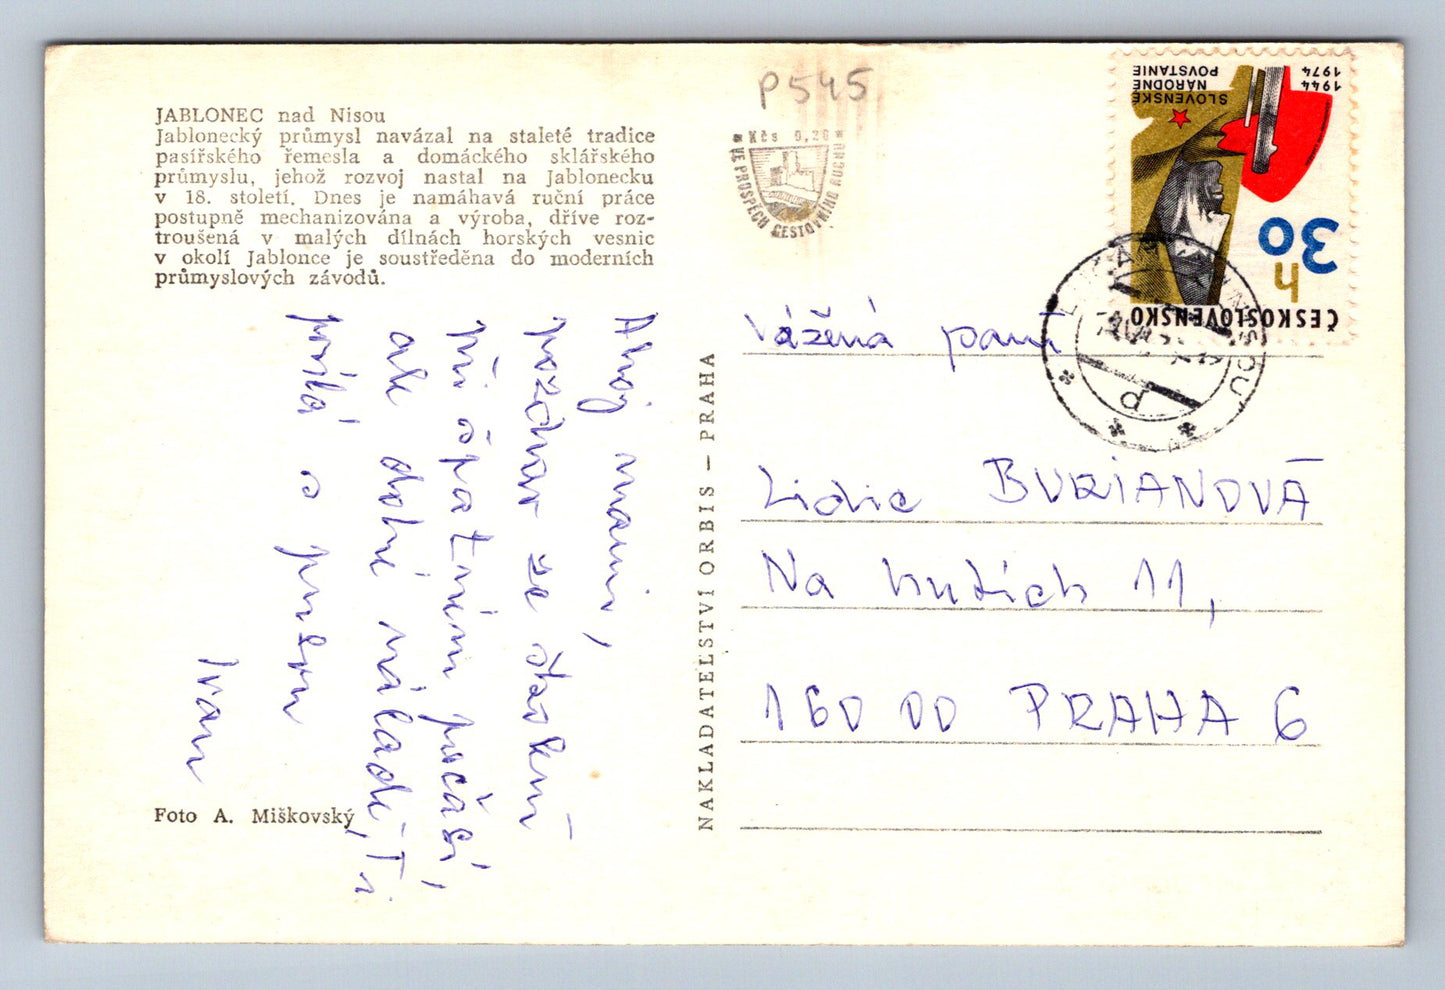 JABLONEC nad Nisou
Jablonecký průmysl navázal na staleté tradice
pasířského řemesla a domáckého sklářského
průmyslu, jehož rozvoj nastal na Jablonecku
v 18. století. Dnes je namáhavá ruční práce
postupně mechanizována a výroba, dříve roz-
troušená v malých dílnách horských vesnic
v okolí Jablonce je soustředěna do moderních
průmyslových závodů.
Ahoj mami,
pozdrav ze
při špatném počasí,
ale dobré náladě, Ti
posílá
Ivan
Foto A. Miškovský
NAKLADATELSTVÍ ORBIS — PRAHA
P545
Kčs 0,20
VE PROSPĚCH CESTOVNÍHO RUCHU
1944
1974
SLOVENSKÉ
NÁRODNÉ
POVSTANIE
30 h
ČESKOSLOVENSKO
NISOU
d
Vážená paní
Lidie BURIANOVÁ
Na hutích 11,
160 00 PRAHA 6